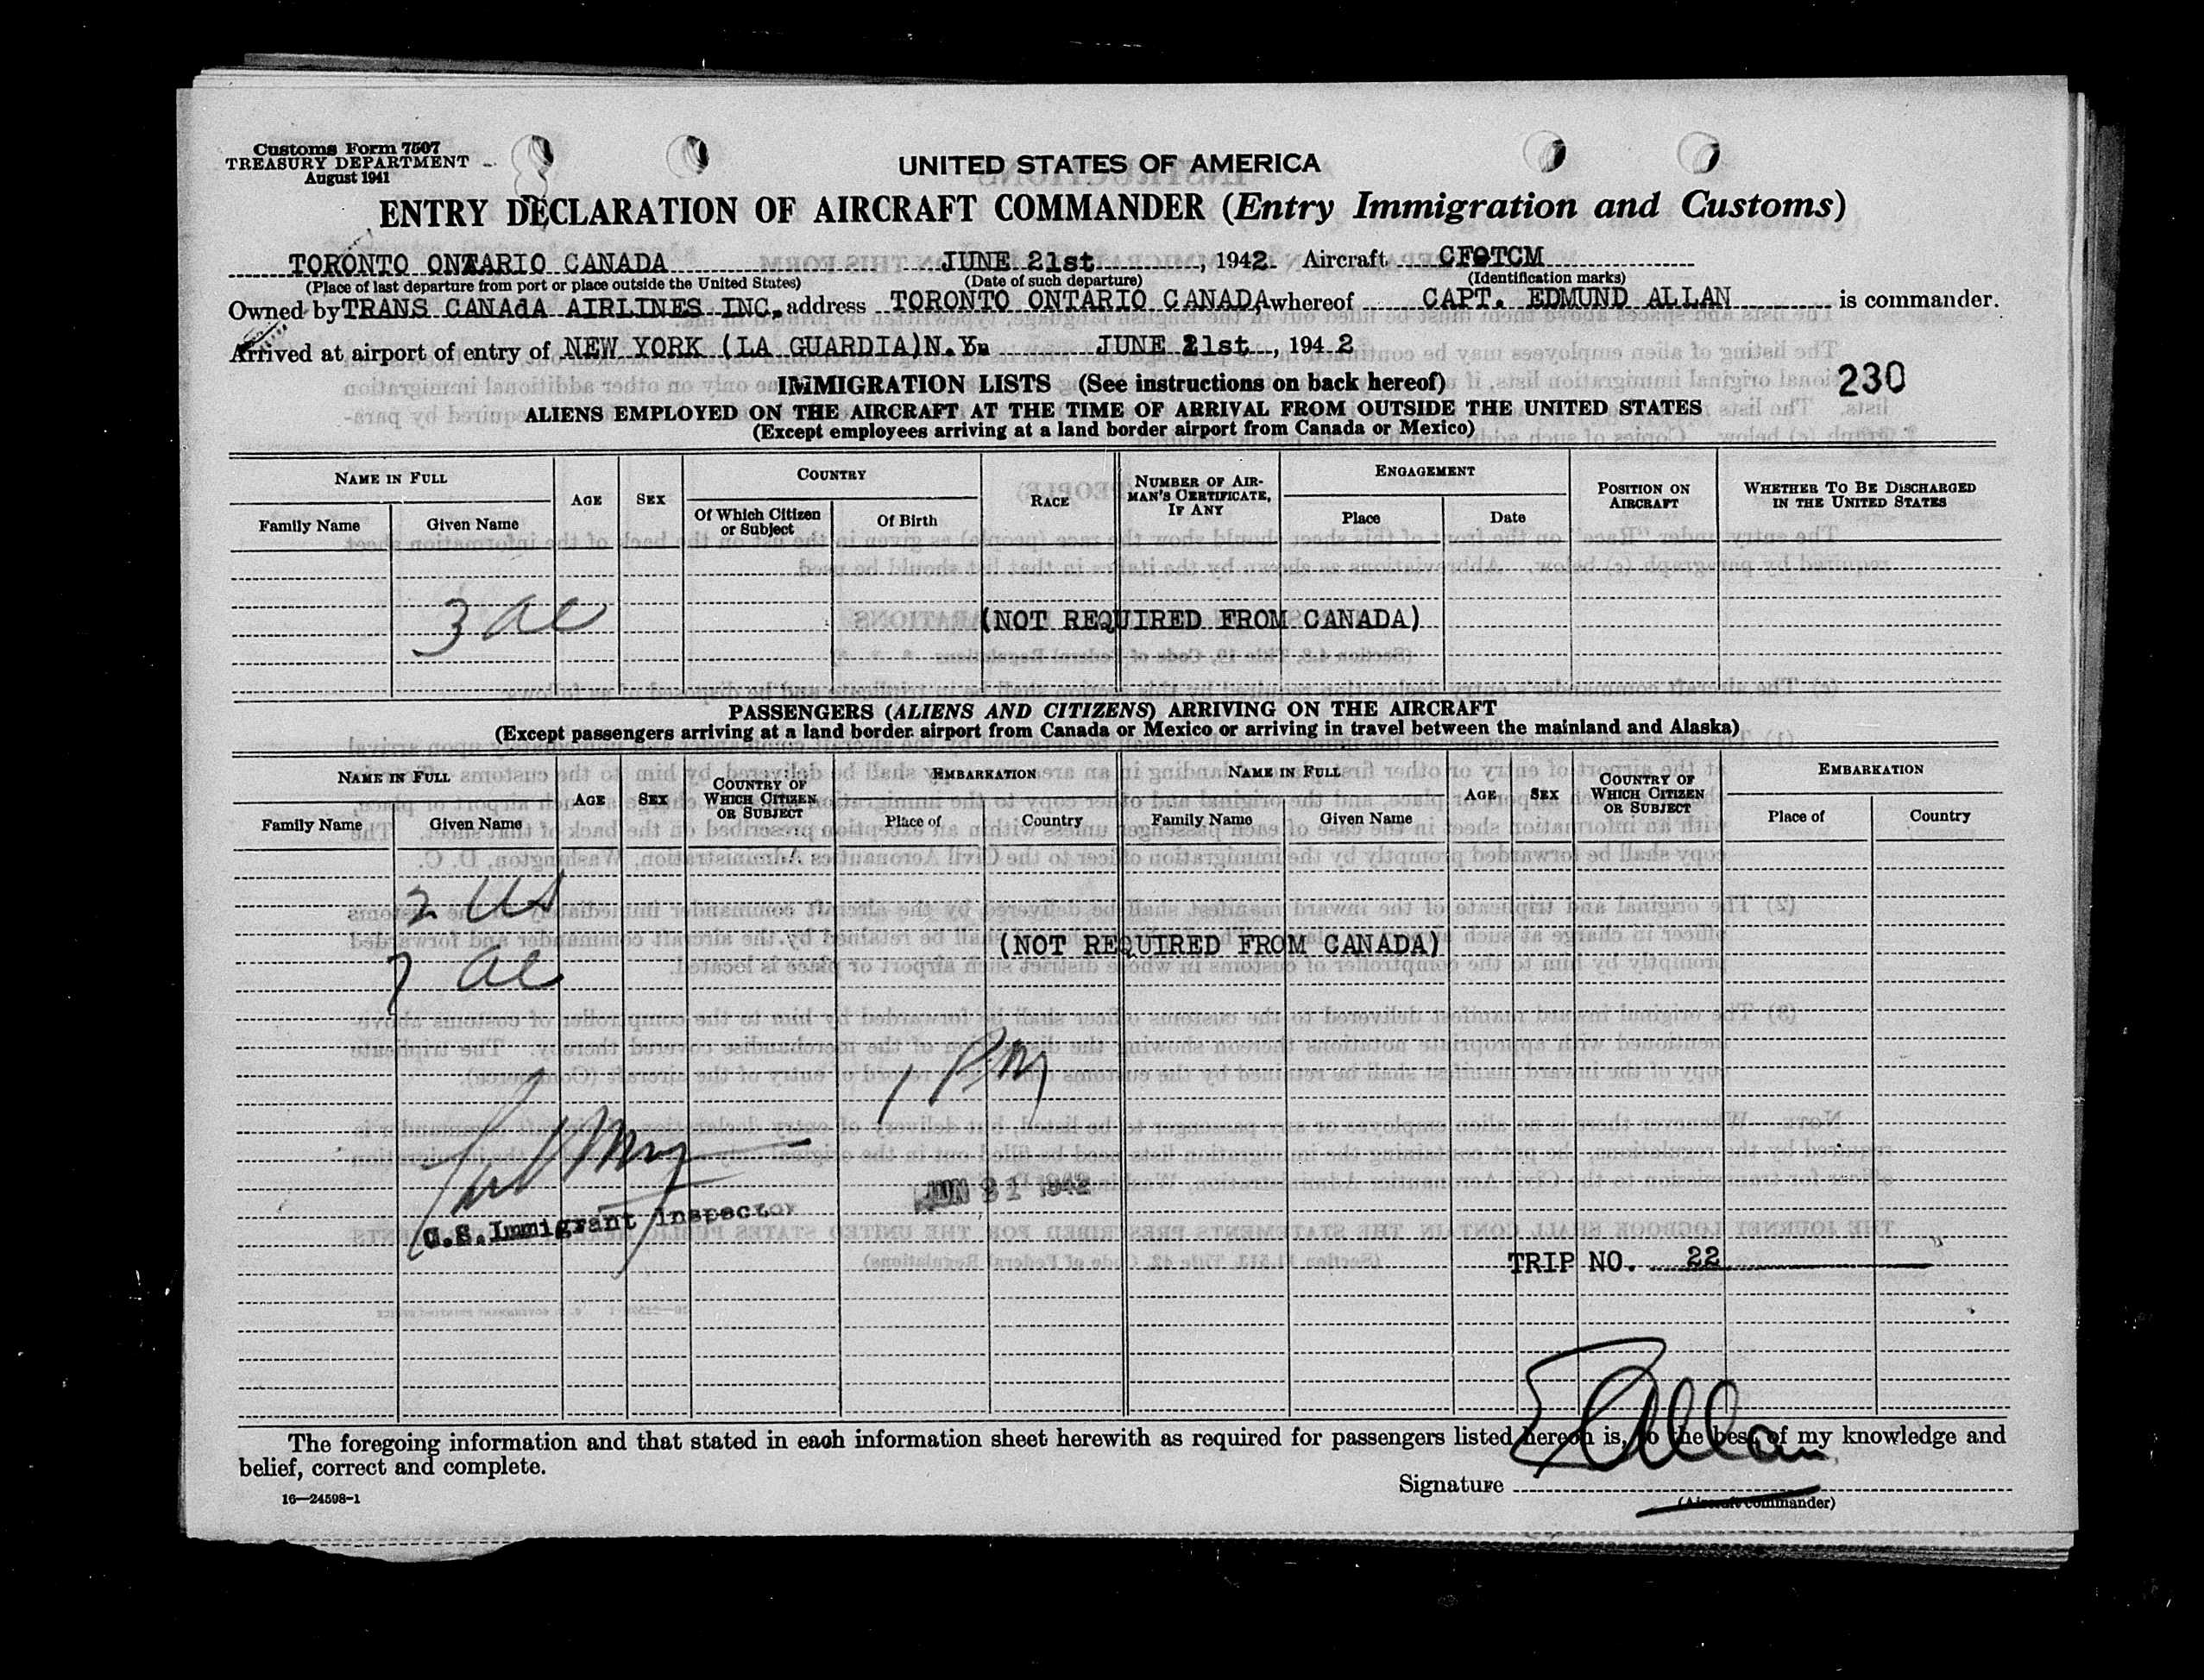 Customs Form 7507
TREASURY DEPARTMENT
August 1941
UNITED STATES OF AMERICA
ENTRY DECLARATION OF AIRCRAFT COMMANDER (Entry Immigration and Customs)
TORONTO ONTARIO CANADA JUNE 21st, 1942 Aircraft CFOTCM
(Place of last departure from port or place outside the United States) (Date of such departure) (Identification marks)
Owned by TRANS CANAdA AIRLINES INC. address TORONTO ONTARIO CANADA, whereof CAPT. EDMUND ALLAN is commander.
Arrived at airport of entry of NEW YORK (LA GUARDIA)N.Y. JUNE 21st, 1942
230
IMMIGRATION LISTS (See instructions on back hereof)
ALIENS EMPLOYED ON THE AIRCRAFT AT THE TIME OF ARRIVAL FROM OUTSIDE THE UNITED STATES
(Except employees arriving at a land border airport from Canada or Mexico)
NAME IN FULL AGE SEX COUNTRY RACE NUMBER OF AIRMAN'S CERTIFICATE, IF ANY ENGAGEMENT POSITION ON AIRCRAFT WHETHER TO BE DISCHARGED IN THE UNITED STATES
Family Name Given Name Of Which Citizen or Subject Of Birth Place Date
3 al
(NOT REQUIRED FROM CANADA)
PASSENGERS (ALIENS AND CITIZENS) ARRIVING ON THE AIRCRAFT
(Except passengers arriving at a land border airport from Canada or Mexico or arriving in travel between the mainland and Alaska)
NAME IN FULL AGE SEX COUNTRY OF WHICH CITIZEN OR SUBJECT EMBARKATION NAME IN FULL AGE SEX COUNTRY OF WHICH CITIZEN OR SUBJECT EMBARKATION
Family Name Given Name Place of Country Family Name Given Name Place of Country
2 US
(NOT REQUIRED FROM CANADA)
7 al
1 PM
JUN 21 1942
U.S. Immigrant Inspector
TRIP NO. 22
The foregoing information and that stated in each information sheet herewith as required for passengers listed hereon is, to the best of my knowledge and
belief, correct and complete.
E Allan
Signature
(Aircraft commander)
16—24598-1